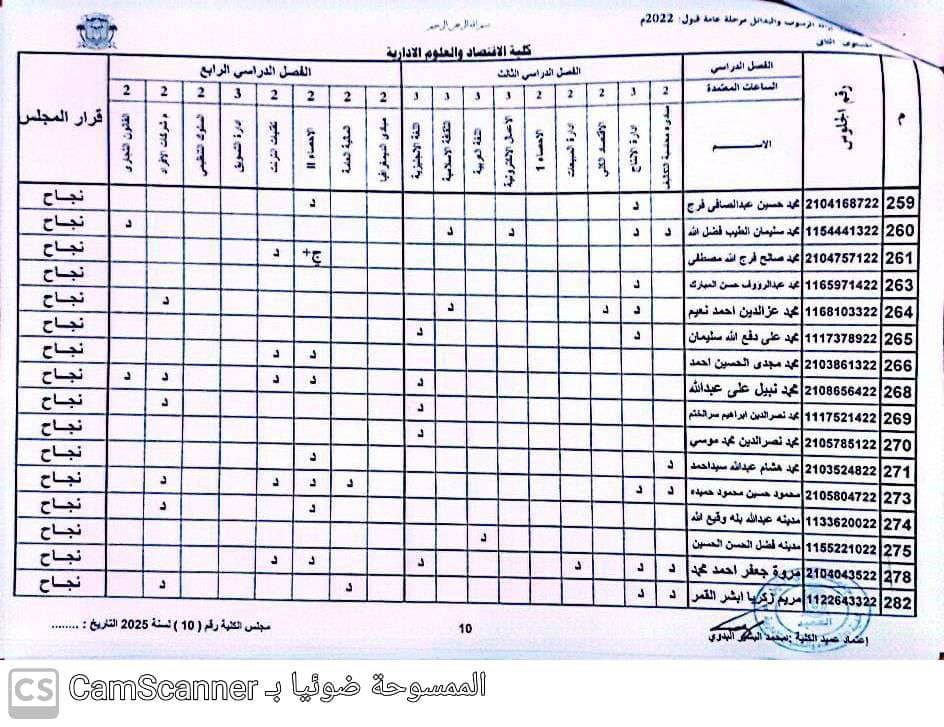 بسم الله الرحمن الرحيم
الرسوب والبدائل مرحلة عامة قبول: 2022م
كلية الاقتصاد والعلوم الادارية
م رقم الجلوس الفصل الدراسي الفصل الدراسي الثالث الفصل الدراسي الرابع قرار المجلس
الساعات المعتمدة 2 3 2 2 2 3 3 3 3 2 2 2 2 3 2 2 2
الاســـم مبادىء محاسبة التكاليف ادارة الانتاج الاقتصاد الكلي ادارة المبيعات الاحصاء 1 الاعمال الالكترونية اللغة العربية الثقافة الاسلامية اللغة الانجليزية مبادى الديمغرافيا المالية العامة الاحصاء II تقنيات انترنت ادارة التسويق السلوك التنظيمي م شركات الافراد القانون التجارى
259 2104168722 محمد حسين عبدالصافى فرج د د نجــاح
260 1154441322 محمد سليمان الطيب فضل الله د د د د د نجــاح
261 2104757122 محمد صالح فرج الله مصطفى ج+ د نجــاح
263 1165971422 محمد عبدالرؤوف حسن المبارك د نجــاح
264 1168103322 محمد عزالدين احمد نعيم د د د د نجــاح
265 1117378922 محمد على دفع الله سليمان د د نجــاح
266 2103861322 محمد مجدى الحسين احمد د د نجــاح
268 2108656422 محمد نبيل على عبدالله د د د د د نجــاح
269 1117521422 محمد نصرالدين ابراهيم سرالختم د د نجــاح
270 2105785122 محمد نصرالدين محمد موسي د نجــاح
271 2103524822 محمد هشام عبدالله سيداحمد د د نجــاح
273 2105804722 محمود حسين محمود حميده د د د د د د نجــاح
274 1133620022 مدينه عبدالله بله وقيع الله د د نجــاح
275 1155221022 مدينه فضل الحسن الحسين د نجــاح
278 2104043522 مروة جعفر احمد محمد د د د د د د نجــاح
282 1122643322 مريم زكريا ابشر القمر د د د د نجــاح
إعتماد عميد الكلية :محمد البشرى البدوي
10
مجلس الكلية رقم (10) لسنة 2025 التاريخ : ........
CS CamScanner الممسوحة ضوئيا بـ